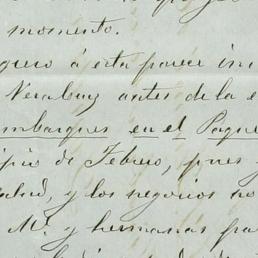 momento.
á esta parece
Veracruz antes de la
embarques en el Paque
de Febrero, pues
salud, y los negocios no
M. y hermanas pa